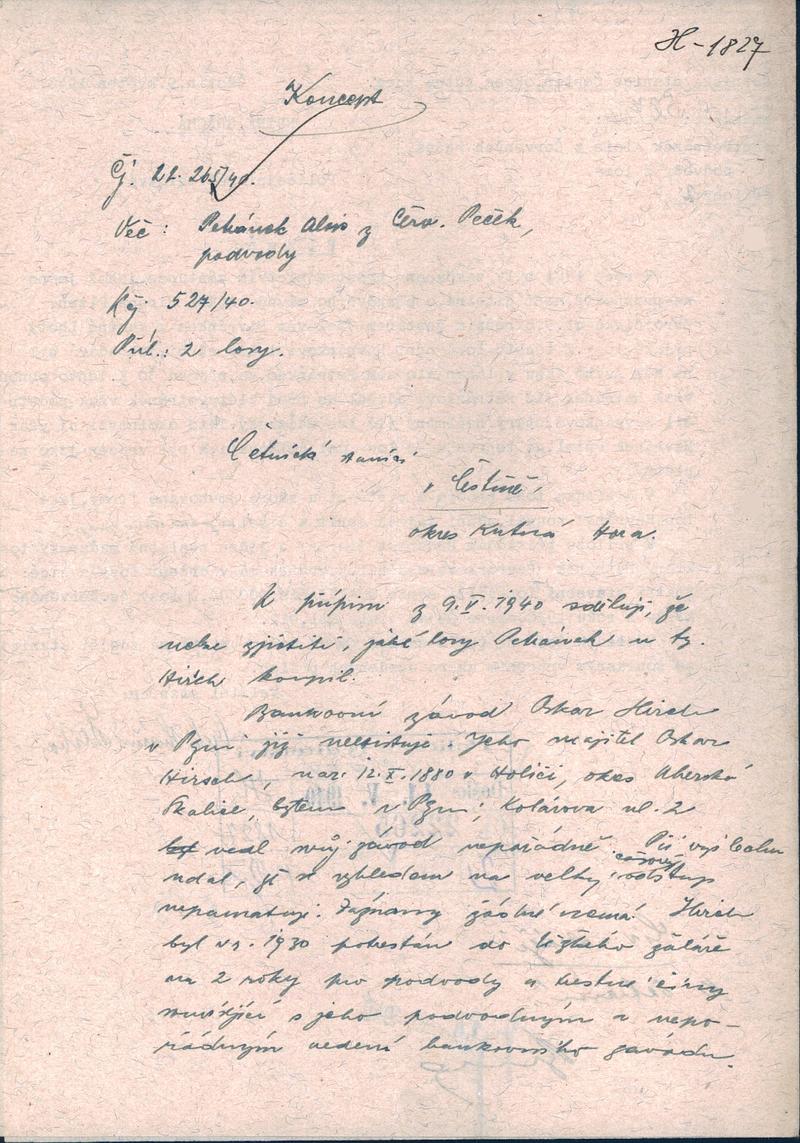 H-1827
Koncept
Čj. 22.265/40.
Věc: Pekárek Alois z Červ. Peček,
podvody
Kčj. 527/40.
Příl.: 2 losy.
Četnická stanici
v Čestíně,
okres Kutná Hora.
K přípisu z 9.V.1940 sděluji, že
nelze zjistiti, jaké losy Pekárek u fy.
Hirsch koupil.
Bankovní závod Oskar Hirsch
v Brně již neexistuje. Jeho majitel Oskar
Hirsch, nar. 12.X.1880 v Holíči, okres Uherská
Skalice, bytem v Brně, Kolárova ul. 2
vedl svůj závod nepořádně. Při výslechu
udal, že se vzhledem na velký časový odstup
nepamatuje. Záznamy žádné nemá. Hirsch
byl v r. 1930 potrestán do těžkého žaláře
na 2 roky pro podvody a trestné činy
související s jeho podvodným a nepo-
řádným vedení bankovního závodu.